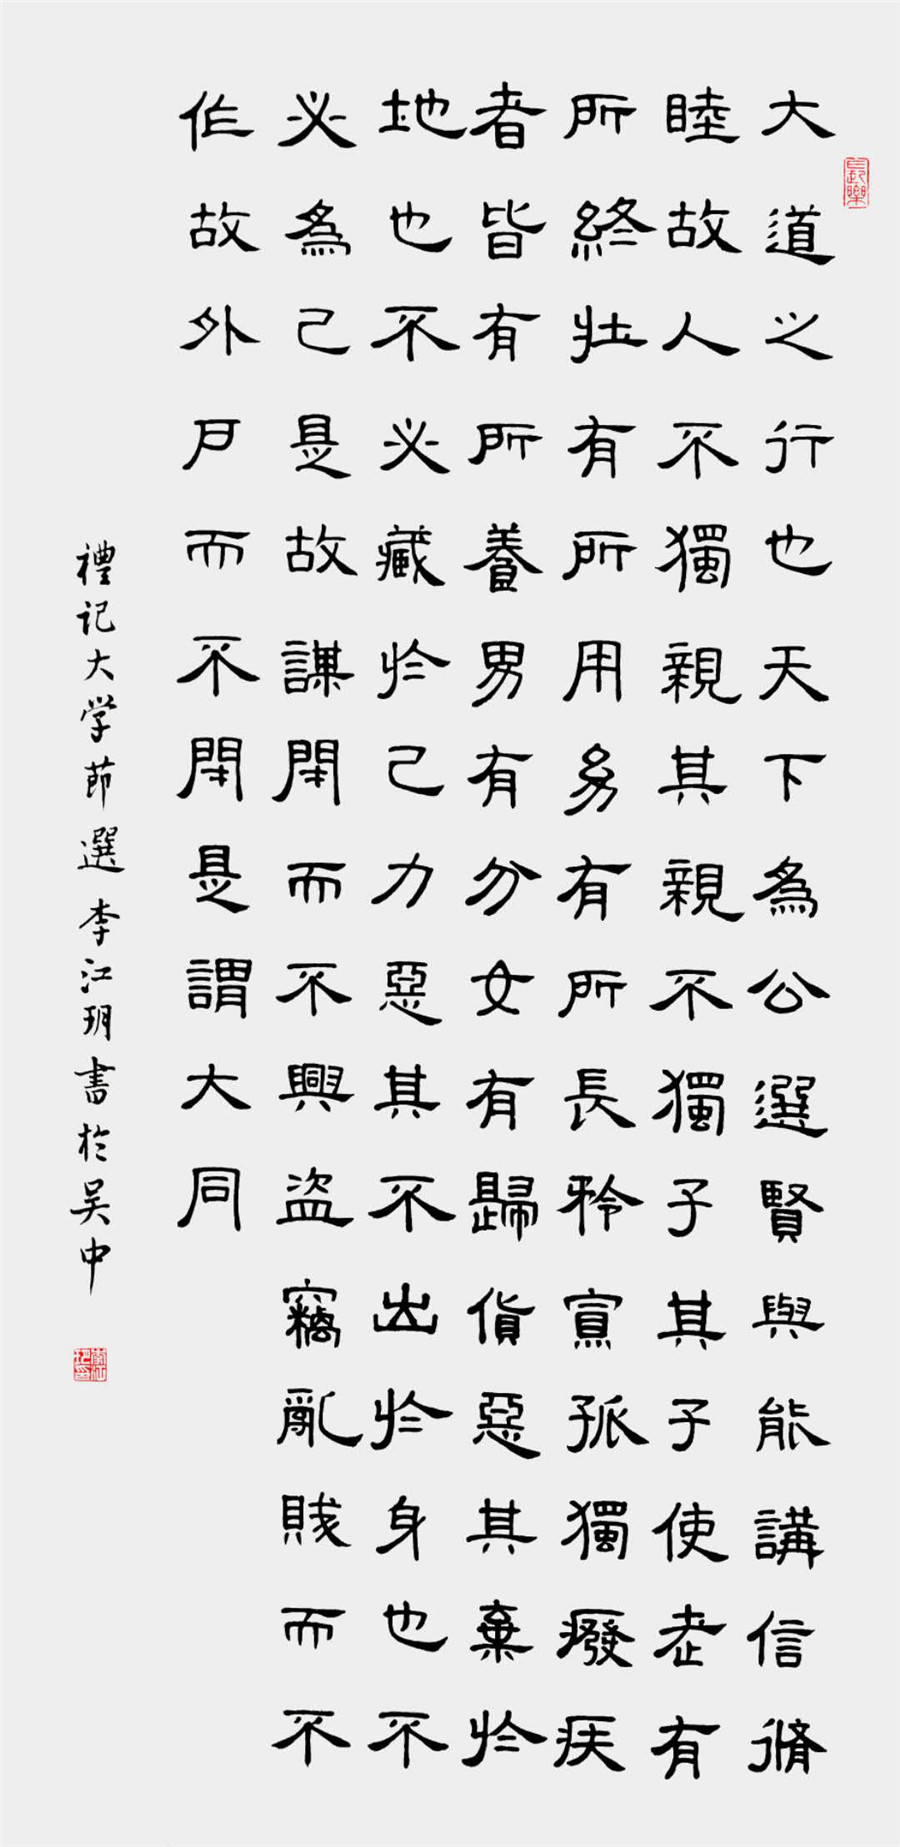 大道之行也天下為公選賢與能講信脩
睦故人不獨親其親不獨子其子使老有
所終壯有所用幼有所長矜寡孤獨癈疾
者皆有所養男有分女有歸貨惡其棄於
地也不必藏於己力惡其不出於身也不
必為己是故謀閉而不興盜竊亂賊而不
作故外戶而不閉是謂大同
禮记大学節選李江玥書於吴中